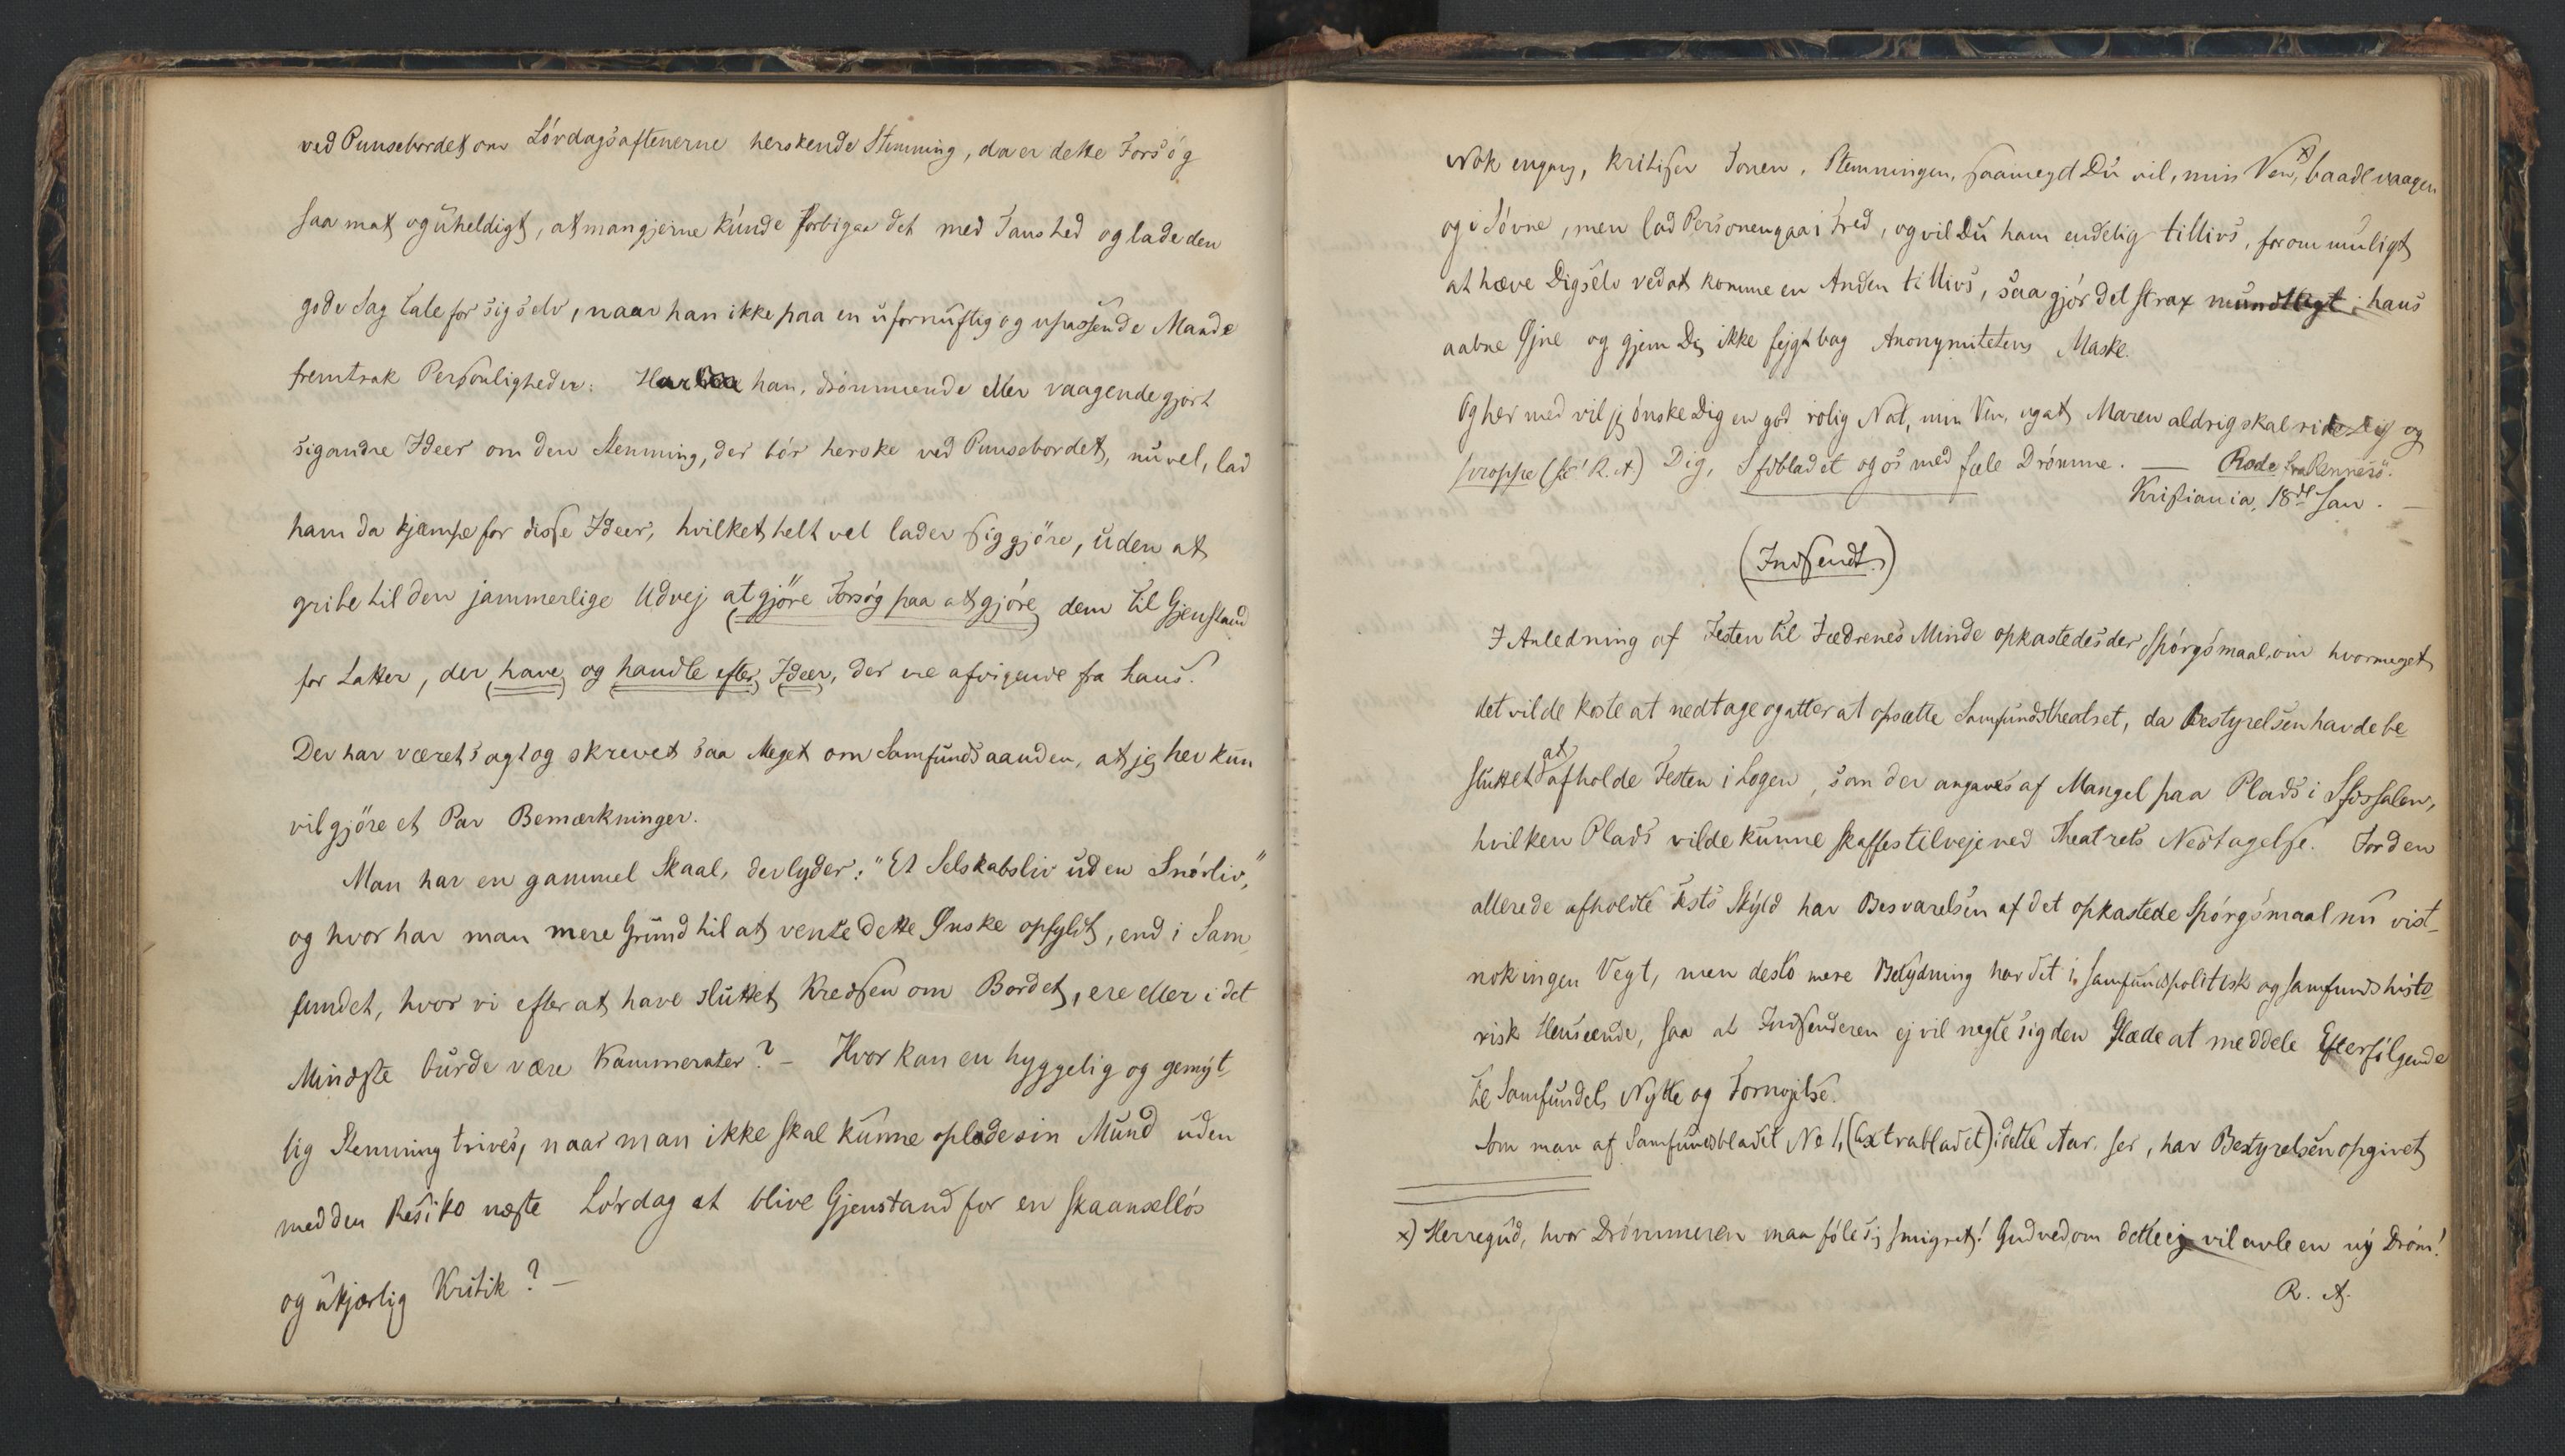 ved Punsebordet om Lördagsaftenerne herskende Stemning, da er dette Forsög
saa mat og uheldigt, at man gjerne kunde forbigaa det med Taushed og lade den
gode Sag tale for sig selv, naar han ikke paa en ufornuftig og upassende Maade
fremtrak Personligheder: Har han, drömmende eller vaagende gjort
sig andre Ideer om den Stemning, der bör herske ved Punsebordet, nuvel, lad
ham da kjæmpe for disse Ideer, hvilket helt vel lader sig gjöre, uden at
gribe til den jammerlige Udvej at gjöre Forsög paa at gjöre dem til Gjenstand
for Latter, der have og handle efter Ideer, der ere afvigende fra hans.
Der har været sagt og skrevet saa Meget om Samfundsaanden, at jeg her kun
vil gjöre et Par Bemærkninger.
Man har en gammel Skaal, der lyder: "Et Selskabsliv uden Snörliv,"
og hvor har man mere Grund til at vente dette Ønske opfyldt, end i Sam
fundet, hvor vi efter at have sluttet Kredsen om Bordet, ere eller i det
Mindste burde være Kammerater? - Hvor kan en hyggelig og gemyt-
lig Stemning trives, naar man ikke skal kunne oplade sin Mund uden
med den Resiko næste Lördag at blive Gjenstand for en skaansellös
og ukjærlig Kritik? -
Nok engang, kritiser Tonen, Stemningen, saameget Du vil, min Ven,x) baade vaagen
og i Sövne, men lad Personen gaa i Fred, og vil Du ham endelig tillivs, for om muligt
at hæve Dig selv ved at komme en Anden tillivs, saa gjör det strax mundtligt i hans
aabne Øjne og gjem Dig ikke fejgt bag Anonymitetens Maske.
Og her med vil jeg önske Dig en god rolig Nat, min Ven, og at Maren aldrig skal ride Dig og
proppe (sic! R. A) Dig, Sfsbladet og os med fæle Drömme. — Rode fra Rennesö.
Kristiania, 18de Jan. -
(Indsendt.)
I Anledning af Festen til Fædrenes Minde opkastedes der Spörgsmaal, om hvormeget
det vilde koste at nedtage og atter at opsætte Samfundstheatret, da Bestyrelsen havde be-
sluttet at afholde Festen i Logen, som der angaves af Mangel paa Plads i Sfssalen,
hvilken Plads vilde kunne skaffes tilveje ved Theatrets Nedtagelse. For den
allerede afholdte Fests Skyld har Besvarelsen af det opkastede Spörgsmaal nu vist-
nok ingen Vegt, men desto mere Betydning har det i samfundspolitisk og samfundshisto-
risk Henseende, saa at Indsenderen ej vil negte sig den Glæde at meddele Efterfölgende
til Samfundets Nytte og Fornöjelse.
Som man af Samfundsbladet No 1, (Extrabladet) i dette Aar, ser, har Bestyrelsen opgivet
x) Herregud, hvor Drömmeren maa föle sig smigret! Gud ved, om dette ej vil avle en ny Dröm!
R. A.